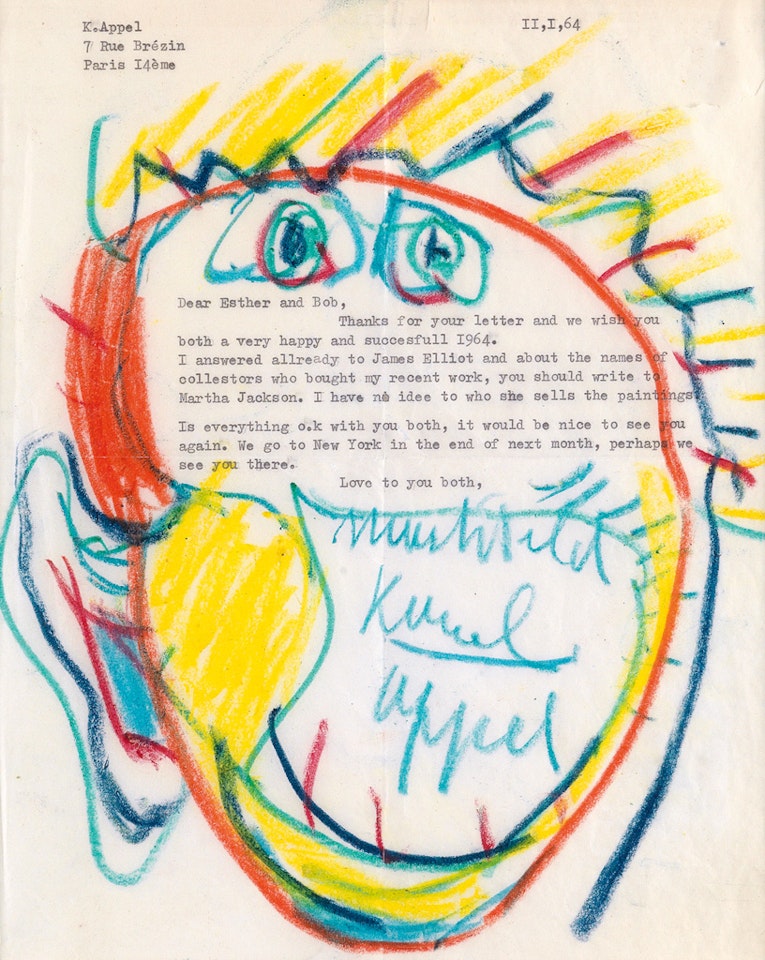 K.Appel
II,I,64
7 Rue Brézin
Paris I4ème
Dear Esther and Bob,
Thanks for your letter and we wish you
both a very happy and succesfull I964.
I answered allready to James Elliot and about the names of
collestors who bought my recent work, you should write to
Martha Jackson. I have no idee to who she sells the paintings.
Is everything o.k with you both, it would be nice to see you
again. We go to New York in the end of next month, perhaps we
see you there.
Love to you both,
Machteld
Karel
appel